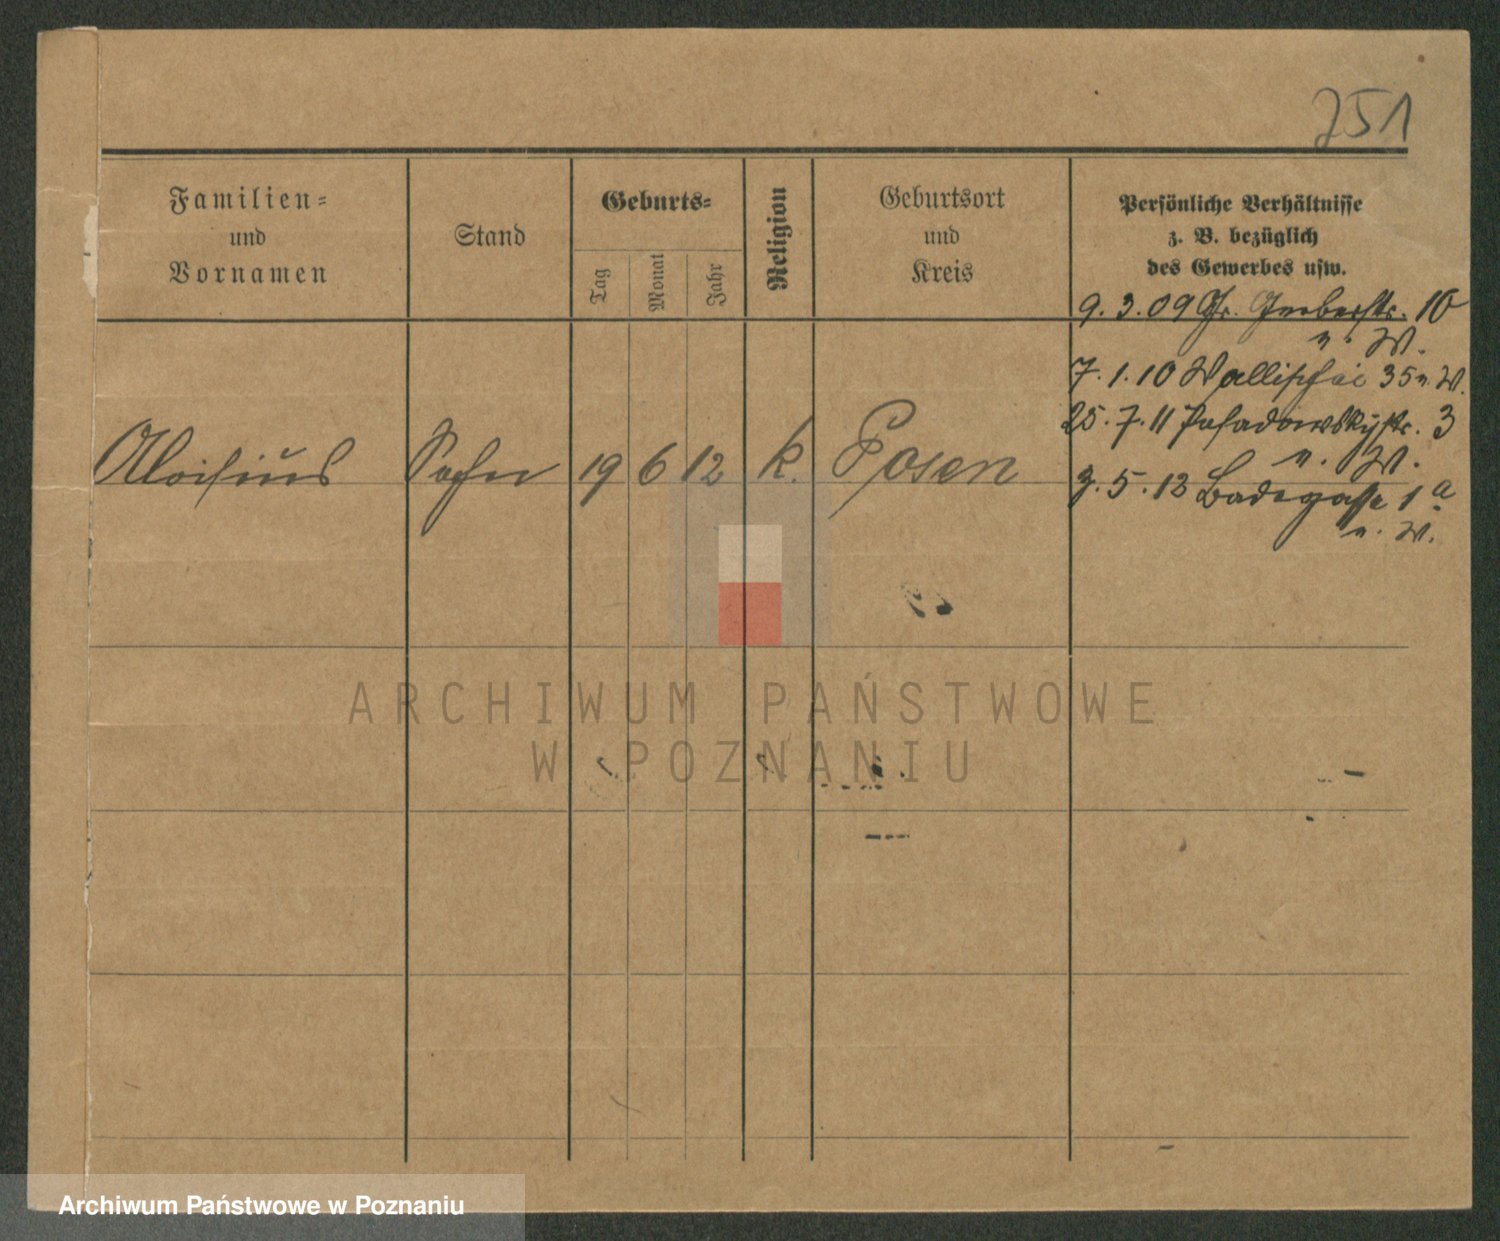 751
Familien=
und
Vornamen
Stand
Geburts=
Tag
Monat
Jahr
Religion
Geburtsort
und
Kreis
Persönliche Verhältnisse
z. B. bezüglich
des Gewerbes usw.
9.3.09 Gr. Gerberstr. 10
n. W.
7.1.10 Wallischei 35 n. W.
25.7.11 Posadowskystr. 3
n. W.
3.5.12 Badegasse 1a
n. W.
Aloisius Sohn 19 6 12 k. Posen
ARCHIWUM PAŃSTWOWE
W POZNANIU
Archiwum Państwowe w Poznaniu